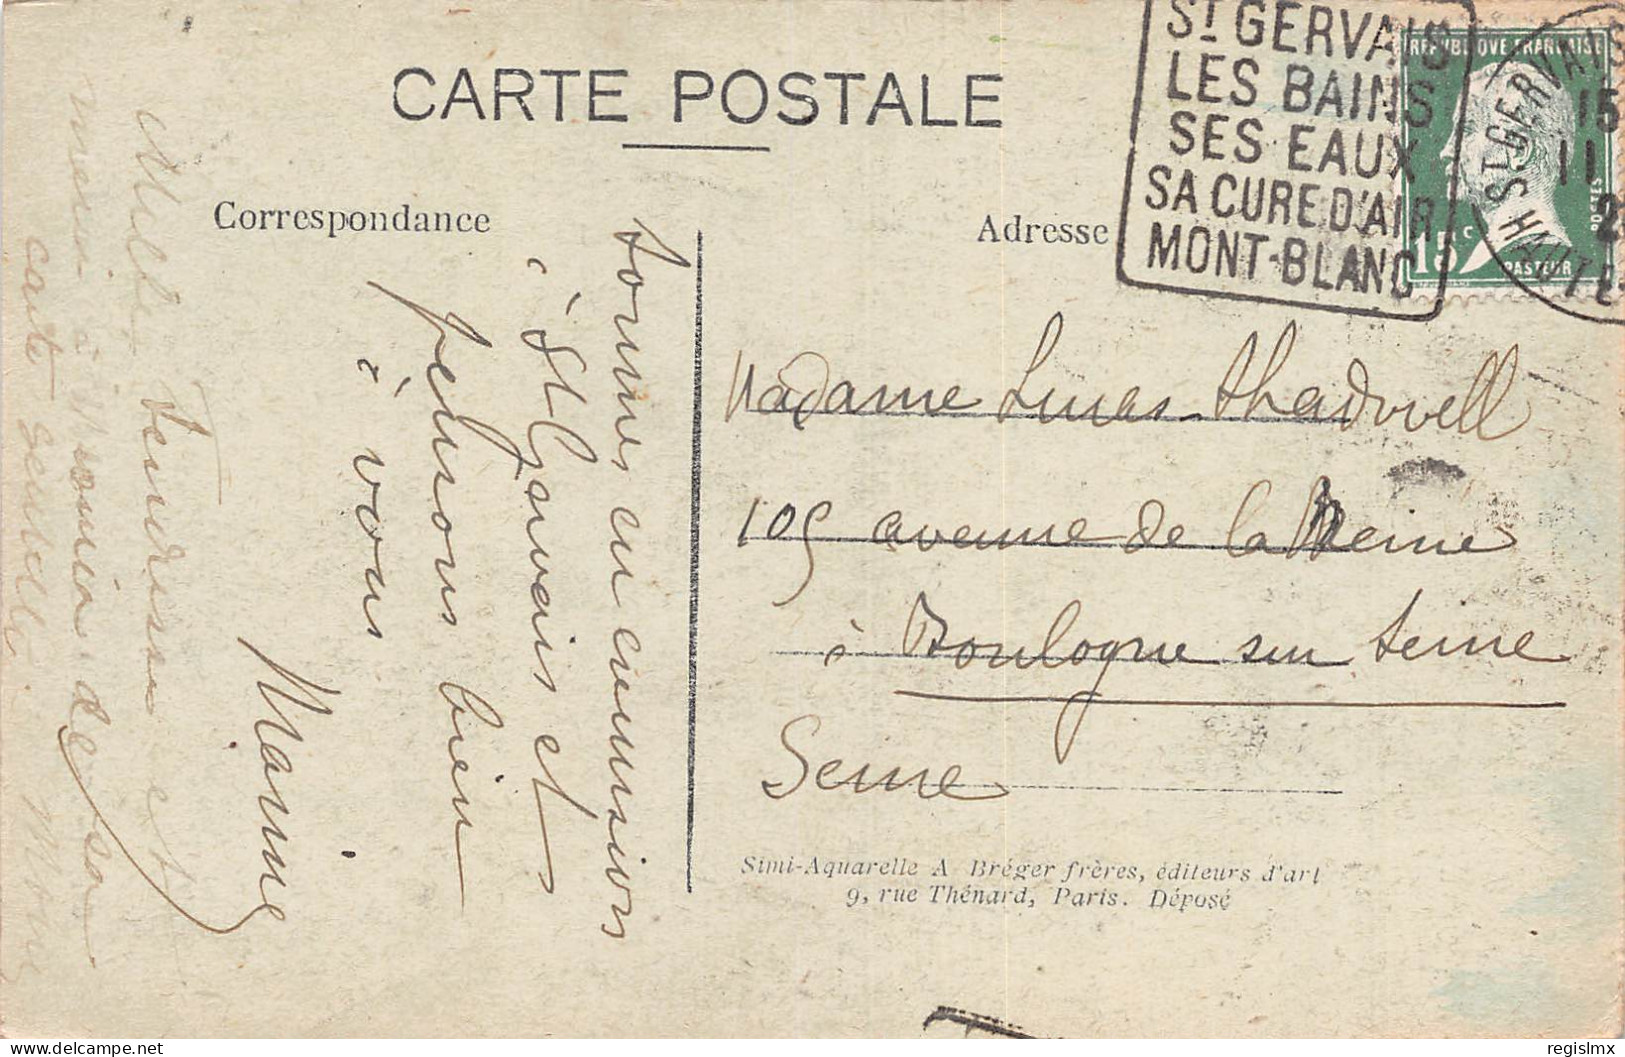 CARTE POSTALE
Correspondance
Adresse
ST GERVAIS
LES BAINS
SES EAUX
SA CURE D'AIR
MONT-BLANC
REPUBLIQUE FRANÇAISE
POSTES
15c
PASTEUR
ST GERVAIS
HAUTE
15
11
2
sommes en excursions
à St Gervais et
pensons bien
à vous
Mainne
Mille tendresses et
merci à Sonia de sa
carte
Madame Lucas Shadwell
109 avenue de la Reine
à Boulogne sur Seine
Seine
Simi-Aquarelle A Bréger frères, éditeurs d'art
9, rue Thénard, Paris. Déposé
regislmx